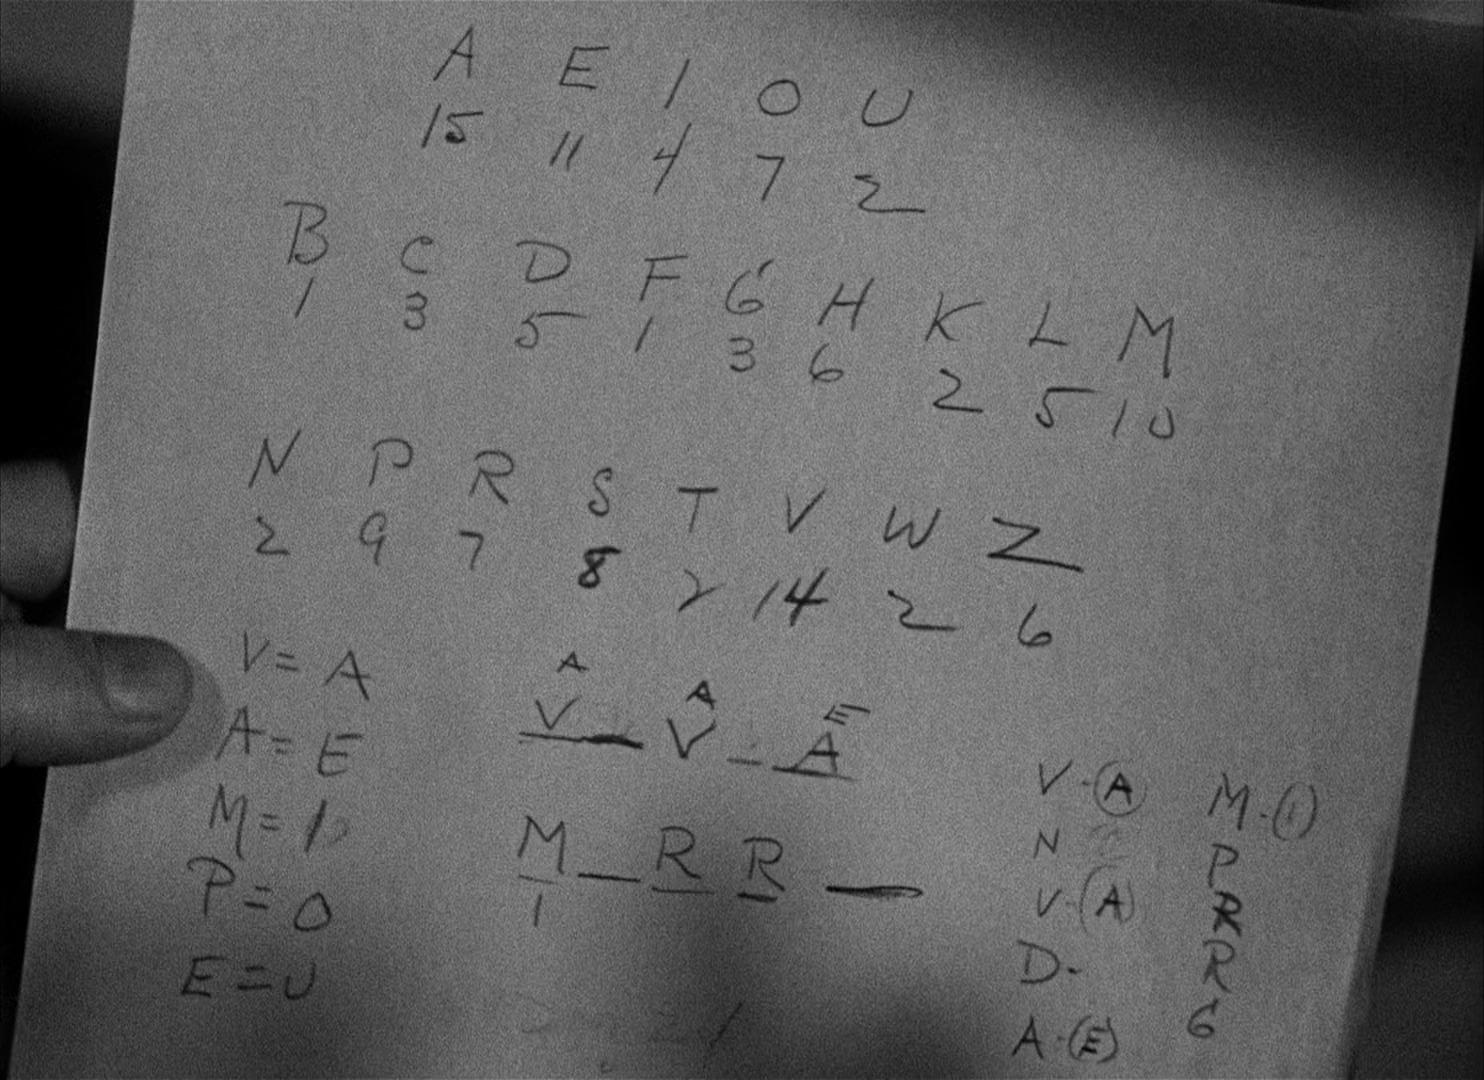 A E I O U
15 11 4 7 2
B C D F G H K L M
1 3 5 1 3 6 2 5 10
N P R S T V W Z
2 9 7 8 2 14 2 6
V = A
A = E
M = 1
P = O
E = U
A A E
V _ V _ A
M _ R R _
1
V - (A)
N
V - (A)
D -
A - (E)
M - (1)
P
R
R
G